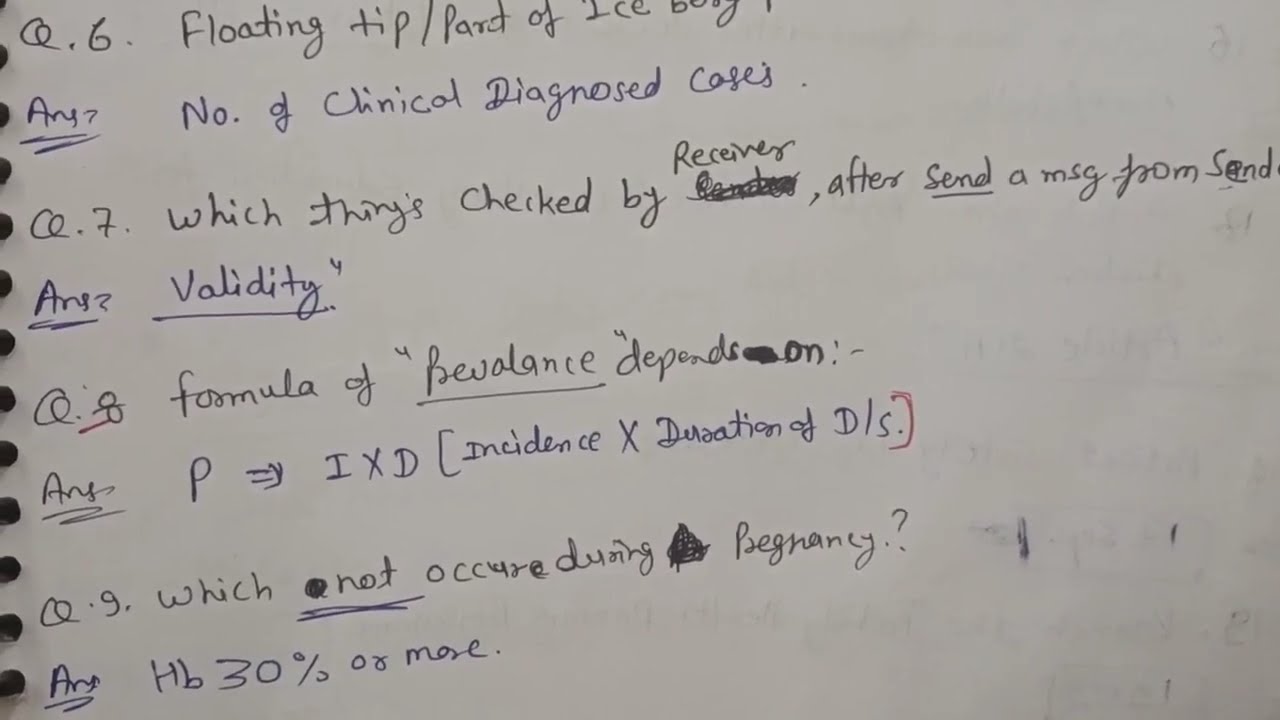 Q.6. Floating tip/Part of Ice berg
Ans= No. of Clinical Diagnosed Cases.
Receiver
Q.7. Which thing's Checked by , after Send a msg from Sende
Ans= Validity"
Q.8 formula of "Prevalance" depends on:-
Ans P ⇒ I X D [Incidence X Duration of D/s.]
Q.9. Which not occure during Pregnancy.?
Ans Hb 30% or more.